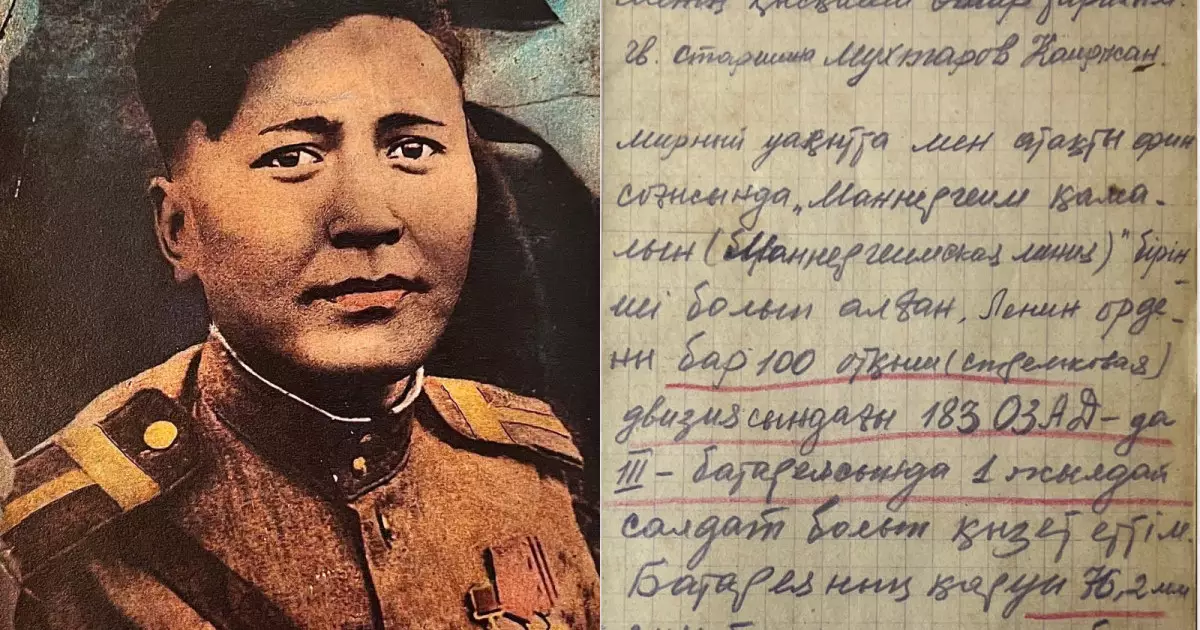 қысқаша өмір тарихым.
гв. старшина Мухтаров Каиржан.
мирный уақытта мен атақты фин
соғысында „Маннергейм қама-
лын (Маннергеимская линия)" бірін-
ші болып алған, Ленин орде-
ні бар 100 отқыш (стрелковая)
двизиясындағы 183 ОЗАД-да
III - батареясында 1 жылдай
солдат болып қызет еттім.
Батареяның қаруы 76,2 мм